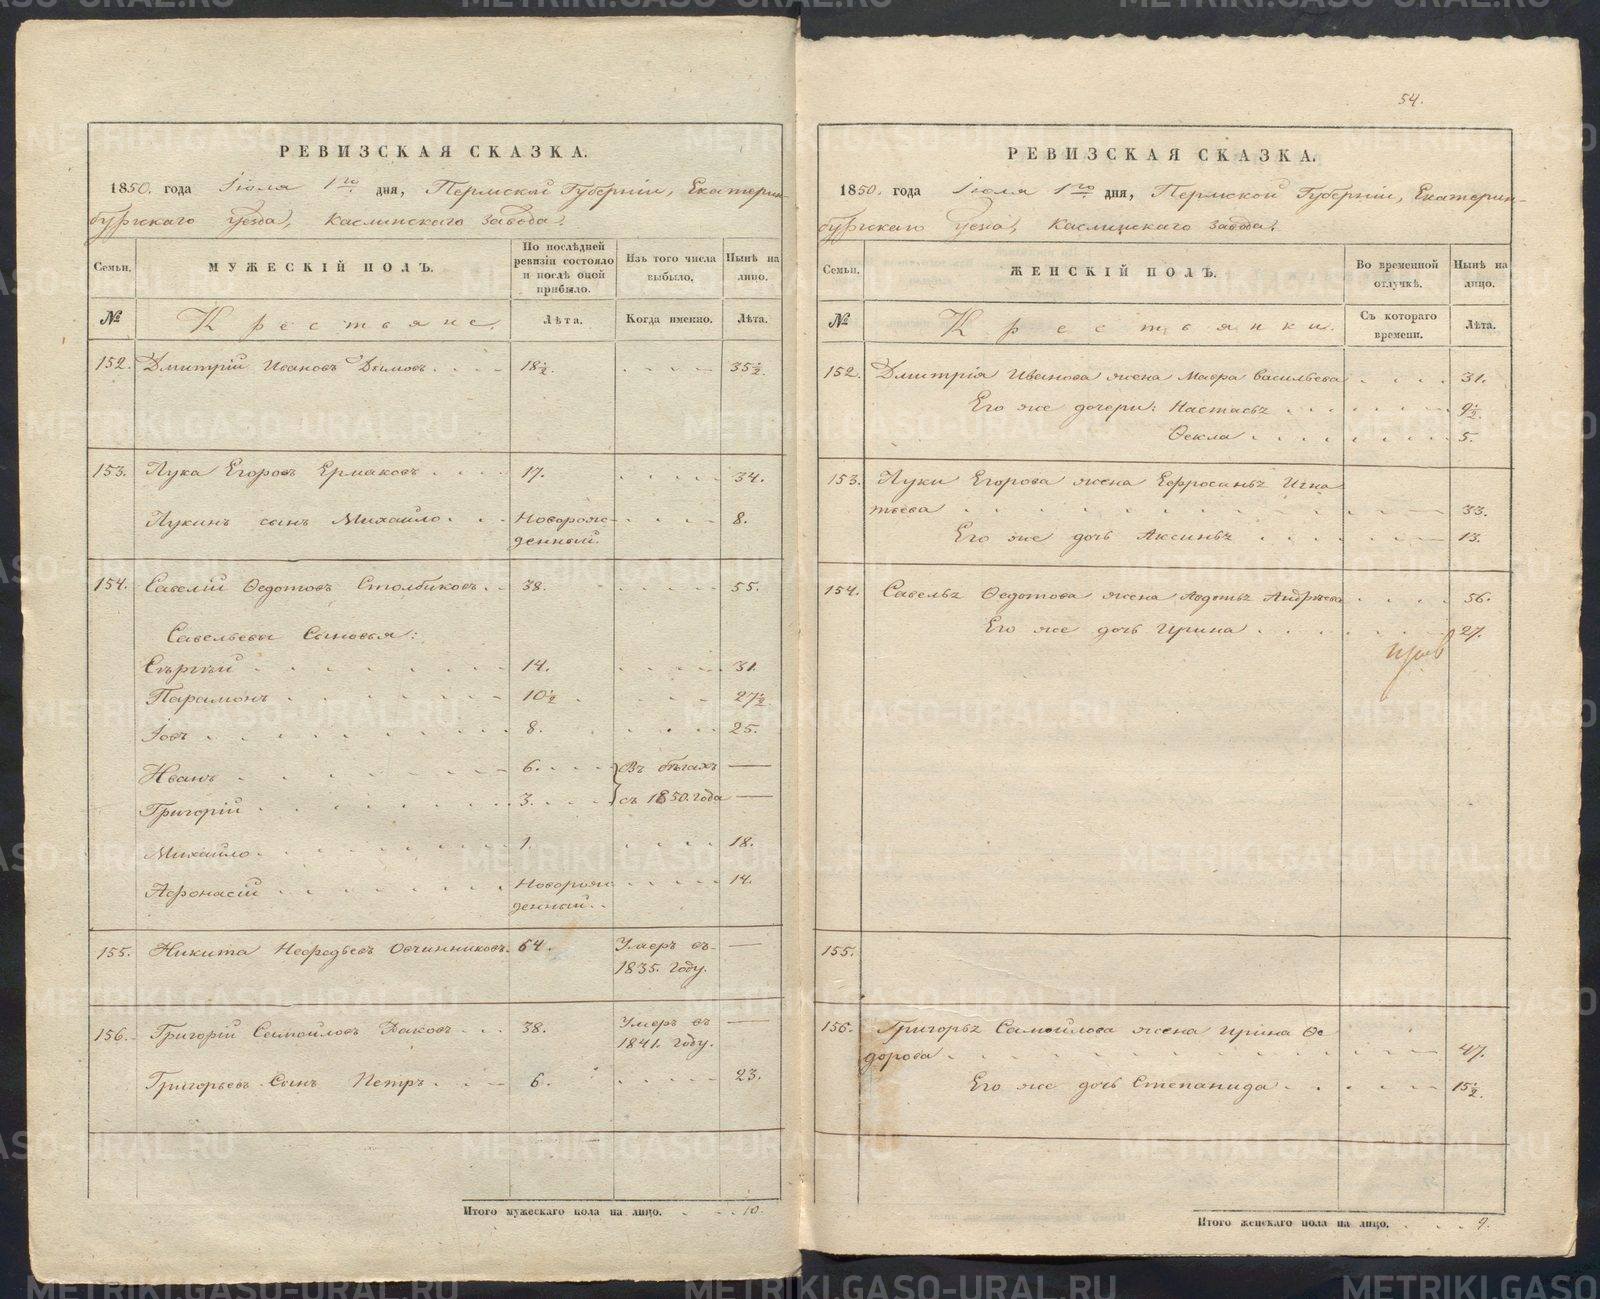 РЕВИЗСКАЯ СКАЗКА.
1850. года Іюля 1го дня, Пермской Губерніи, Екатерин-
бургскаго Уезда, Каслинскаго завода.
Семьи. МУЖЕСКІЙ ПОЛЪ. По послѣдней ревизіи состояло и послѣ оной прибыло. Изъ того числа выбыло. Нынѣ на лицо.
№ Крестьяне. Лѣта. Когда именно. Лѣта.
152. Дмитрій Ивановъ Дымовъ 18½ 35½.
153. Лука Егоровъ Ермаковъ 17. 34.
Лукинъ сынъ Михайло Новорож- 8.
денный.
154. Савелій Ѳедотовъ Столбиковъ 38. 55.
Савельевы Сыновья:
Сѣргѣй 14. 31.
Парамонъ 10½ 27½
Іовъ 8. 25.
Иванъ 6. Въ бѣгахъ —
Григорій 3. съ 1850. года —
Михайло 1. 18.
Афонасій Новорож- 14.
денный.
155. Никита Нефедьевъ Овчинниковъ 64. Умеръ въ —
1835. году.
156. Григорій Самойловъ 38. Умеръ въ —
1841. году.
Григорьевъ Сынъ Петръ 6. 23.
Итого мужескаго пола на лицо. 10.
54.
РЕВИЗСКАЯ СКАЗКА.
1850. года Іюля 1го дня, Пермской Губерніи, Екатерин-
бургскаго Уезда, Каслинскаго завода.
Семьи. ЖЕНСКІЙ ПОЛЪ. Во временной отлучкѣ. Нынѣ на лицо.
№ Крестьянки. Съ котораго времени. Лѣта.
152. Дмитрія Иванова жена Мавра Васильева 31.
Его же дочери: Настасья 9½.
Ѳекла 5.
153. Луки Егорова жена Ефросинья Игна
тьева 33.
Его же дочь Аксинья 13.
154. Савелья Ѳедотова жена Авдотья Андрѣева 56.
Его же дочь Ирина 27.
155.
156. Григорья Самойлова жена Ирина Ѳе
дорова 47.
Его же дочь Степанида 15½
Итого женскаго пола на лицо. 9.
METRIKI.GASO-URAL.RU